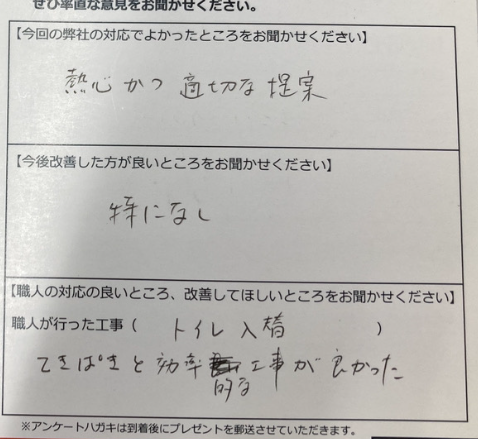 ぜひ率直な意見をお聞かせください。
【今回の弊社の対応でよかったところをお聞かせください】
熱心かつ適切な提案
【今後改善した方が良いところをお聞かせください】
特になし
【職人の対応の良いところ、改善してほしいところをお聞かせください】
職人が行った工事（ トイレ入替 ）
てきぱきと効率的な工事が良かった
※アンケートハガキは到着後にプレゼントを郵送させていただきます。